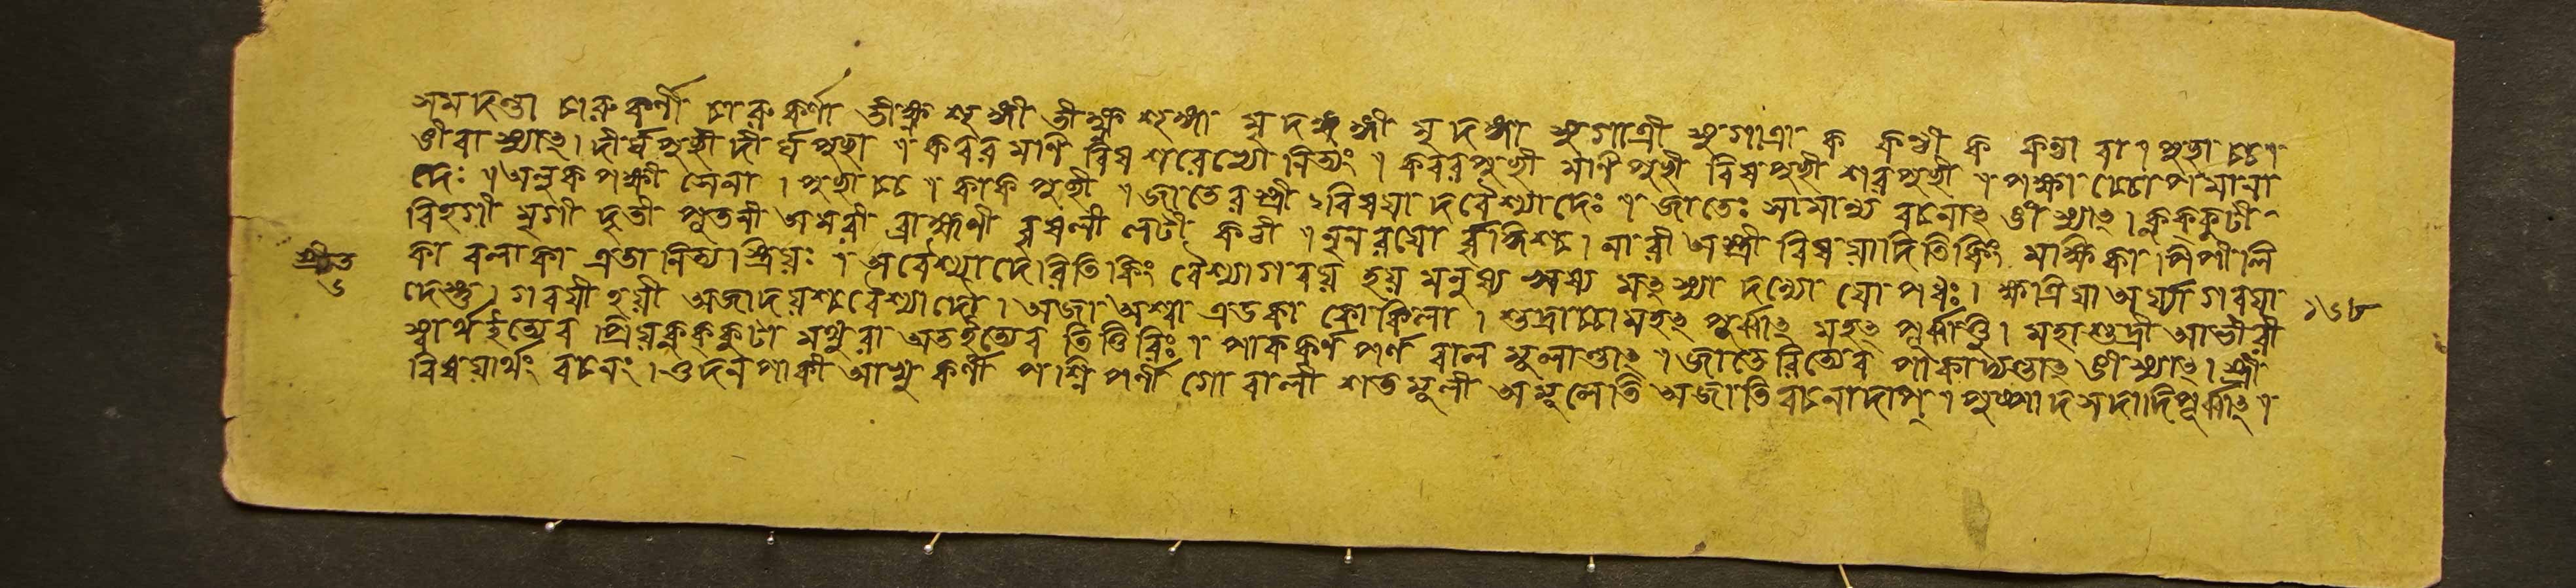 সমদন্তা চারুকর্ণী চারুকর্ণা তীক্ষ্ণশৃঙ্গী তীক্ষ্ণশৃঙ্গা মৃদঙ্গী মৃদঙ্গা সুগাত্রী সুগাত্রা ক কণ্ঠী ক কণ্ঠা বা । পুচ্ছাচ্চ ।
ঙীবা স্যাৎ । দীর্ঘপুচ্ছী দীর্ঘপুচ্ছা । কবরমণি বিষশরেভ্যো নিত্যং । কবরপুচ্ছী মণিপুচ্ছী বিষপুচ্ছী শরপুচ্ছী । পক্ষাচ্চোপমানা
দেঃ । উলুকপক্ষী সেনা । পুচ্ছাচ্চ । কাকপুচ্ছী । জাতেরস্ত্রী বিষয়াদবৈশ্যাদেঃ । জাতেঃ সামান্য বচনাৎ ঙী স্যাৎ । কুক্কুটী
বিহগী মৃগী দূতী পুতনী অমরী ব্রাহ্মণী বৃষলী নটী কঠী । নৃনরয়ো র্বৃদ্ধিশ্চ । নারী অস্ত্রী বিষয়াদিতি কিং মক্ষিকা পিপীলি
কা বলাকা এতা নিত্যস্ত্রিয়ঃ । অবৈশ্যাদেরিতি কিং বৈশ্যা গবয় হয় মনুষ্য মৎস্যা দন্ত্যো যোপধঃ । ক্ষত্রিয়া অর্য্যা গবয়া
দেস্তু । গবয়ী হয়ী অজাদয়শ্চ বৈশ্যাদৌ । অজা অশ্বা এডকা কোকিলা । শূদ্রাচ্চামহৎ পূর্ব্বাৎ মহৎ পূর্ব্বাত্তু । মহাশূদ্রী আভীরী
স্বার্থইত্যেব প্রিয়কুক্কুটা মথুরা অতইত্যেব তিত্তিরিঃ । পাককর্ণ পর্ণ বাল মূলান্তাৎ । জাতেরিত্যেব পাকাদ্যন্তাৎ ঙী স্যাৎ । স্ত্রী
বিষয়ার্থং বচনং । ওদনপাকী আখুকর্ণী পৃশ্নিপর্ণী গোবালী শতমূলী অমূলেতি অজাতি বচনাদাপ্ । পুষ্পাদসদাদিপূর্ব্বাৎ ।
স্ত্রীত
৬
১৬৮